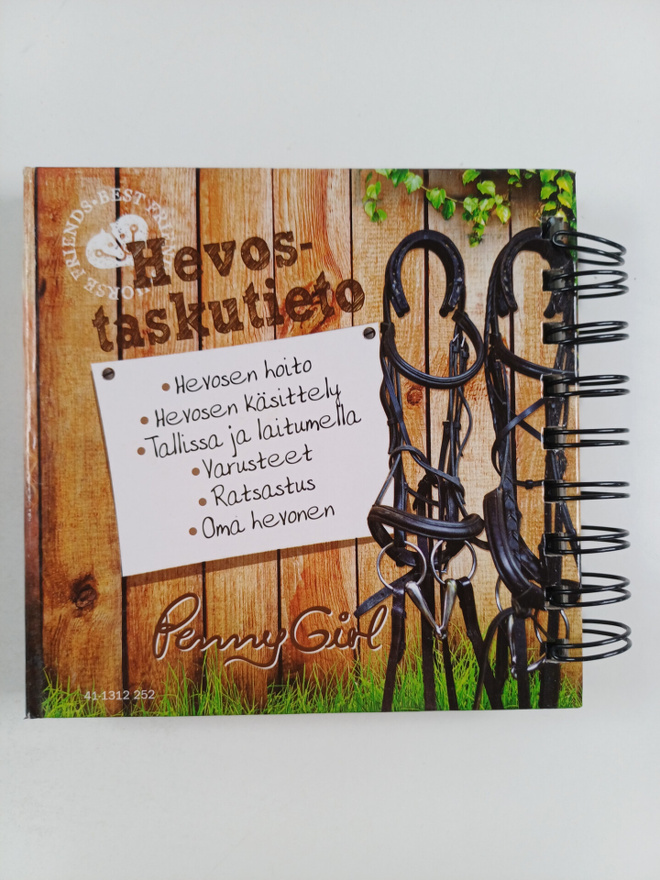 HORSE FRIENDS • BEST
Hevos-
taskutieto
• Hevosen hoito
• Hevosen käsittely
• Tallissa ja laitumella
• Varusteet
• Ratsastus
• Oma hevonen
PennyGirl
41-1312 252